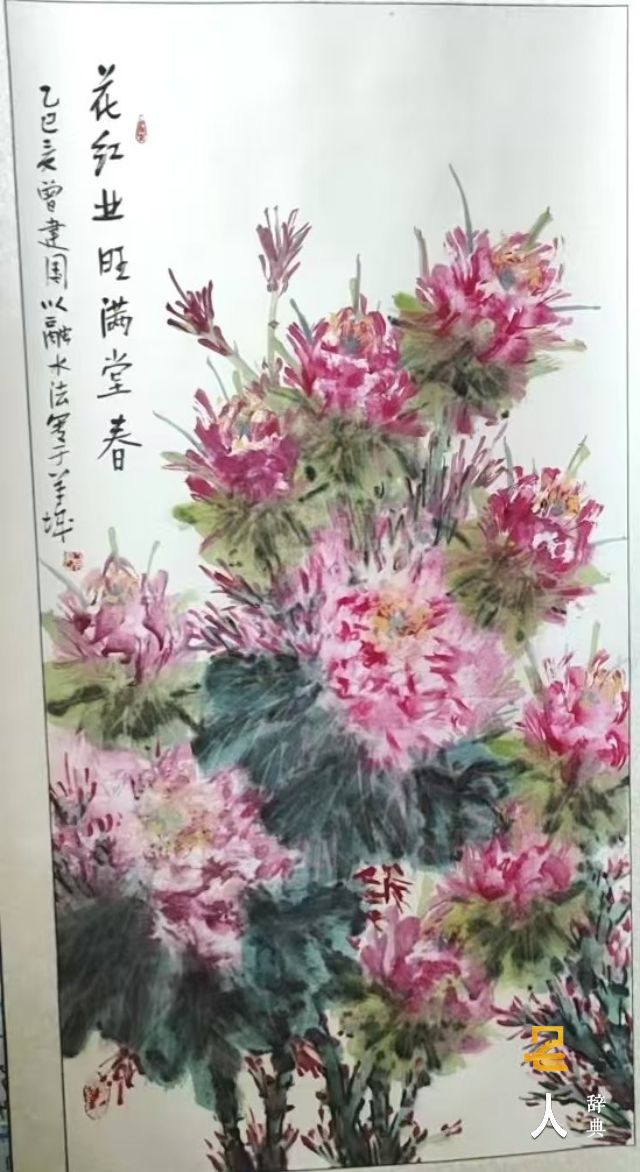 花红业旺满堂春
乙巳夏曾建国以融水法写于羊城
名人
辞典